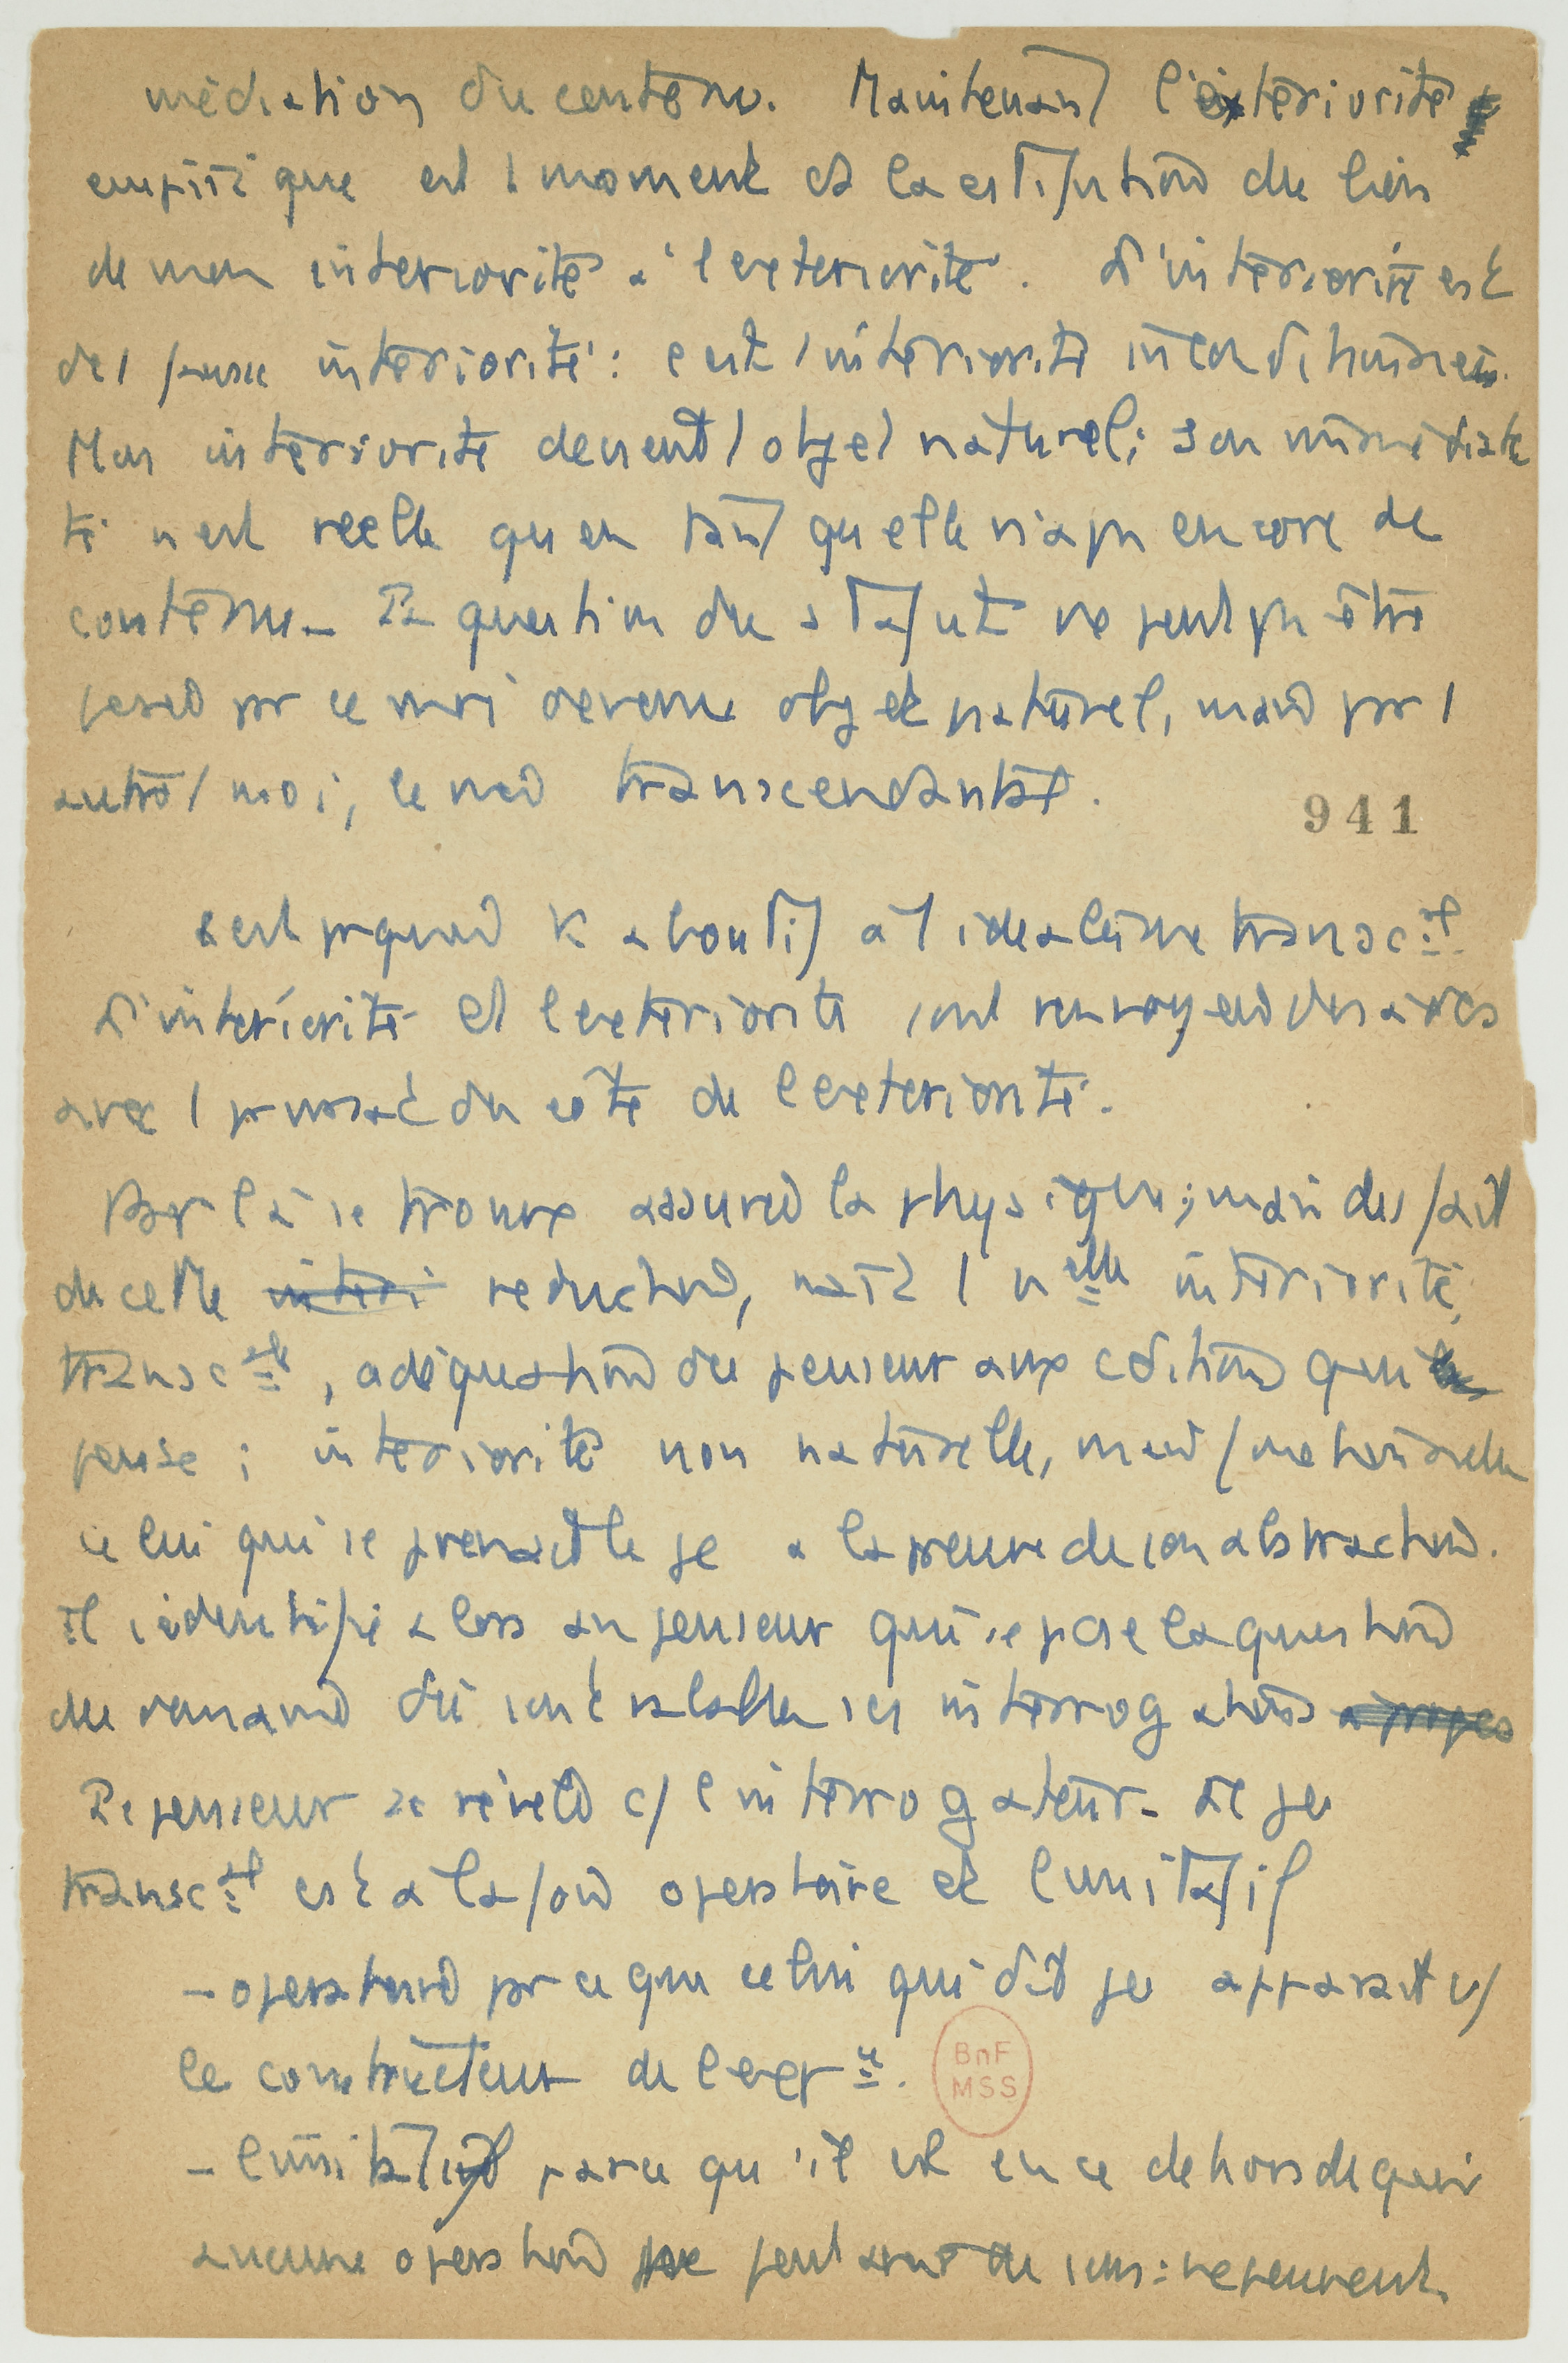 médiation du contenu. Maintenant l'extériorité
empirique est moment et la constitution du lien
de mon interiorité à l'exteriorité. L'intériorité est
de l fausse intériorité : c'est l'intériorité inconditionnée.
Mon intériorité devient l objet naturel ; son immédiate
té n'est réelle qu'en tant qu'elle n'a pas encore de
contenu. La question du statut ne peut pas être
posée par ce moi devenu objet naturel, mais par l
autre moi, le moi transcendantal.
941
C'est pquoi K aboutit à l'idéalisme transc al
L'intériorité et l'extériorité sont renvoyées dos à dos
avec l primat du côté de l'exteriorité.
Par là se trouve assurée la physique ; mais du fait
de cette réduction, naît 1 nelle intériorité
transc ale, adéquation du penseur aux cditions qu'il
pense ; intériorité non naturelle, mais fonctionnelle
celui qui prenait le je à la preuve de son abstraction.
Il s'identifie alors au penseur qui se pose la question
de où sont valables ses interrogations
Le penseur se révèle c/ l'interrogateur. Le je
transc al est à la fois opératoire et limitatif
- opératoire pr ce que celui qui dit je apparaît c/
le constructeur de l'expr ce.
- limitatif parce qu'il est en ce dehors de quoi
aucune opération ne peut avoir de sens : ne peuvent
BnF
MSS